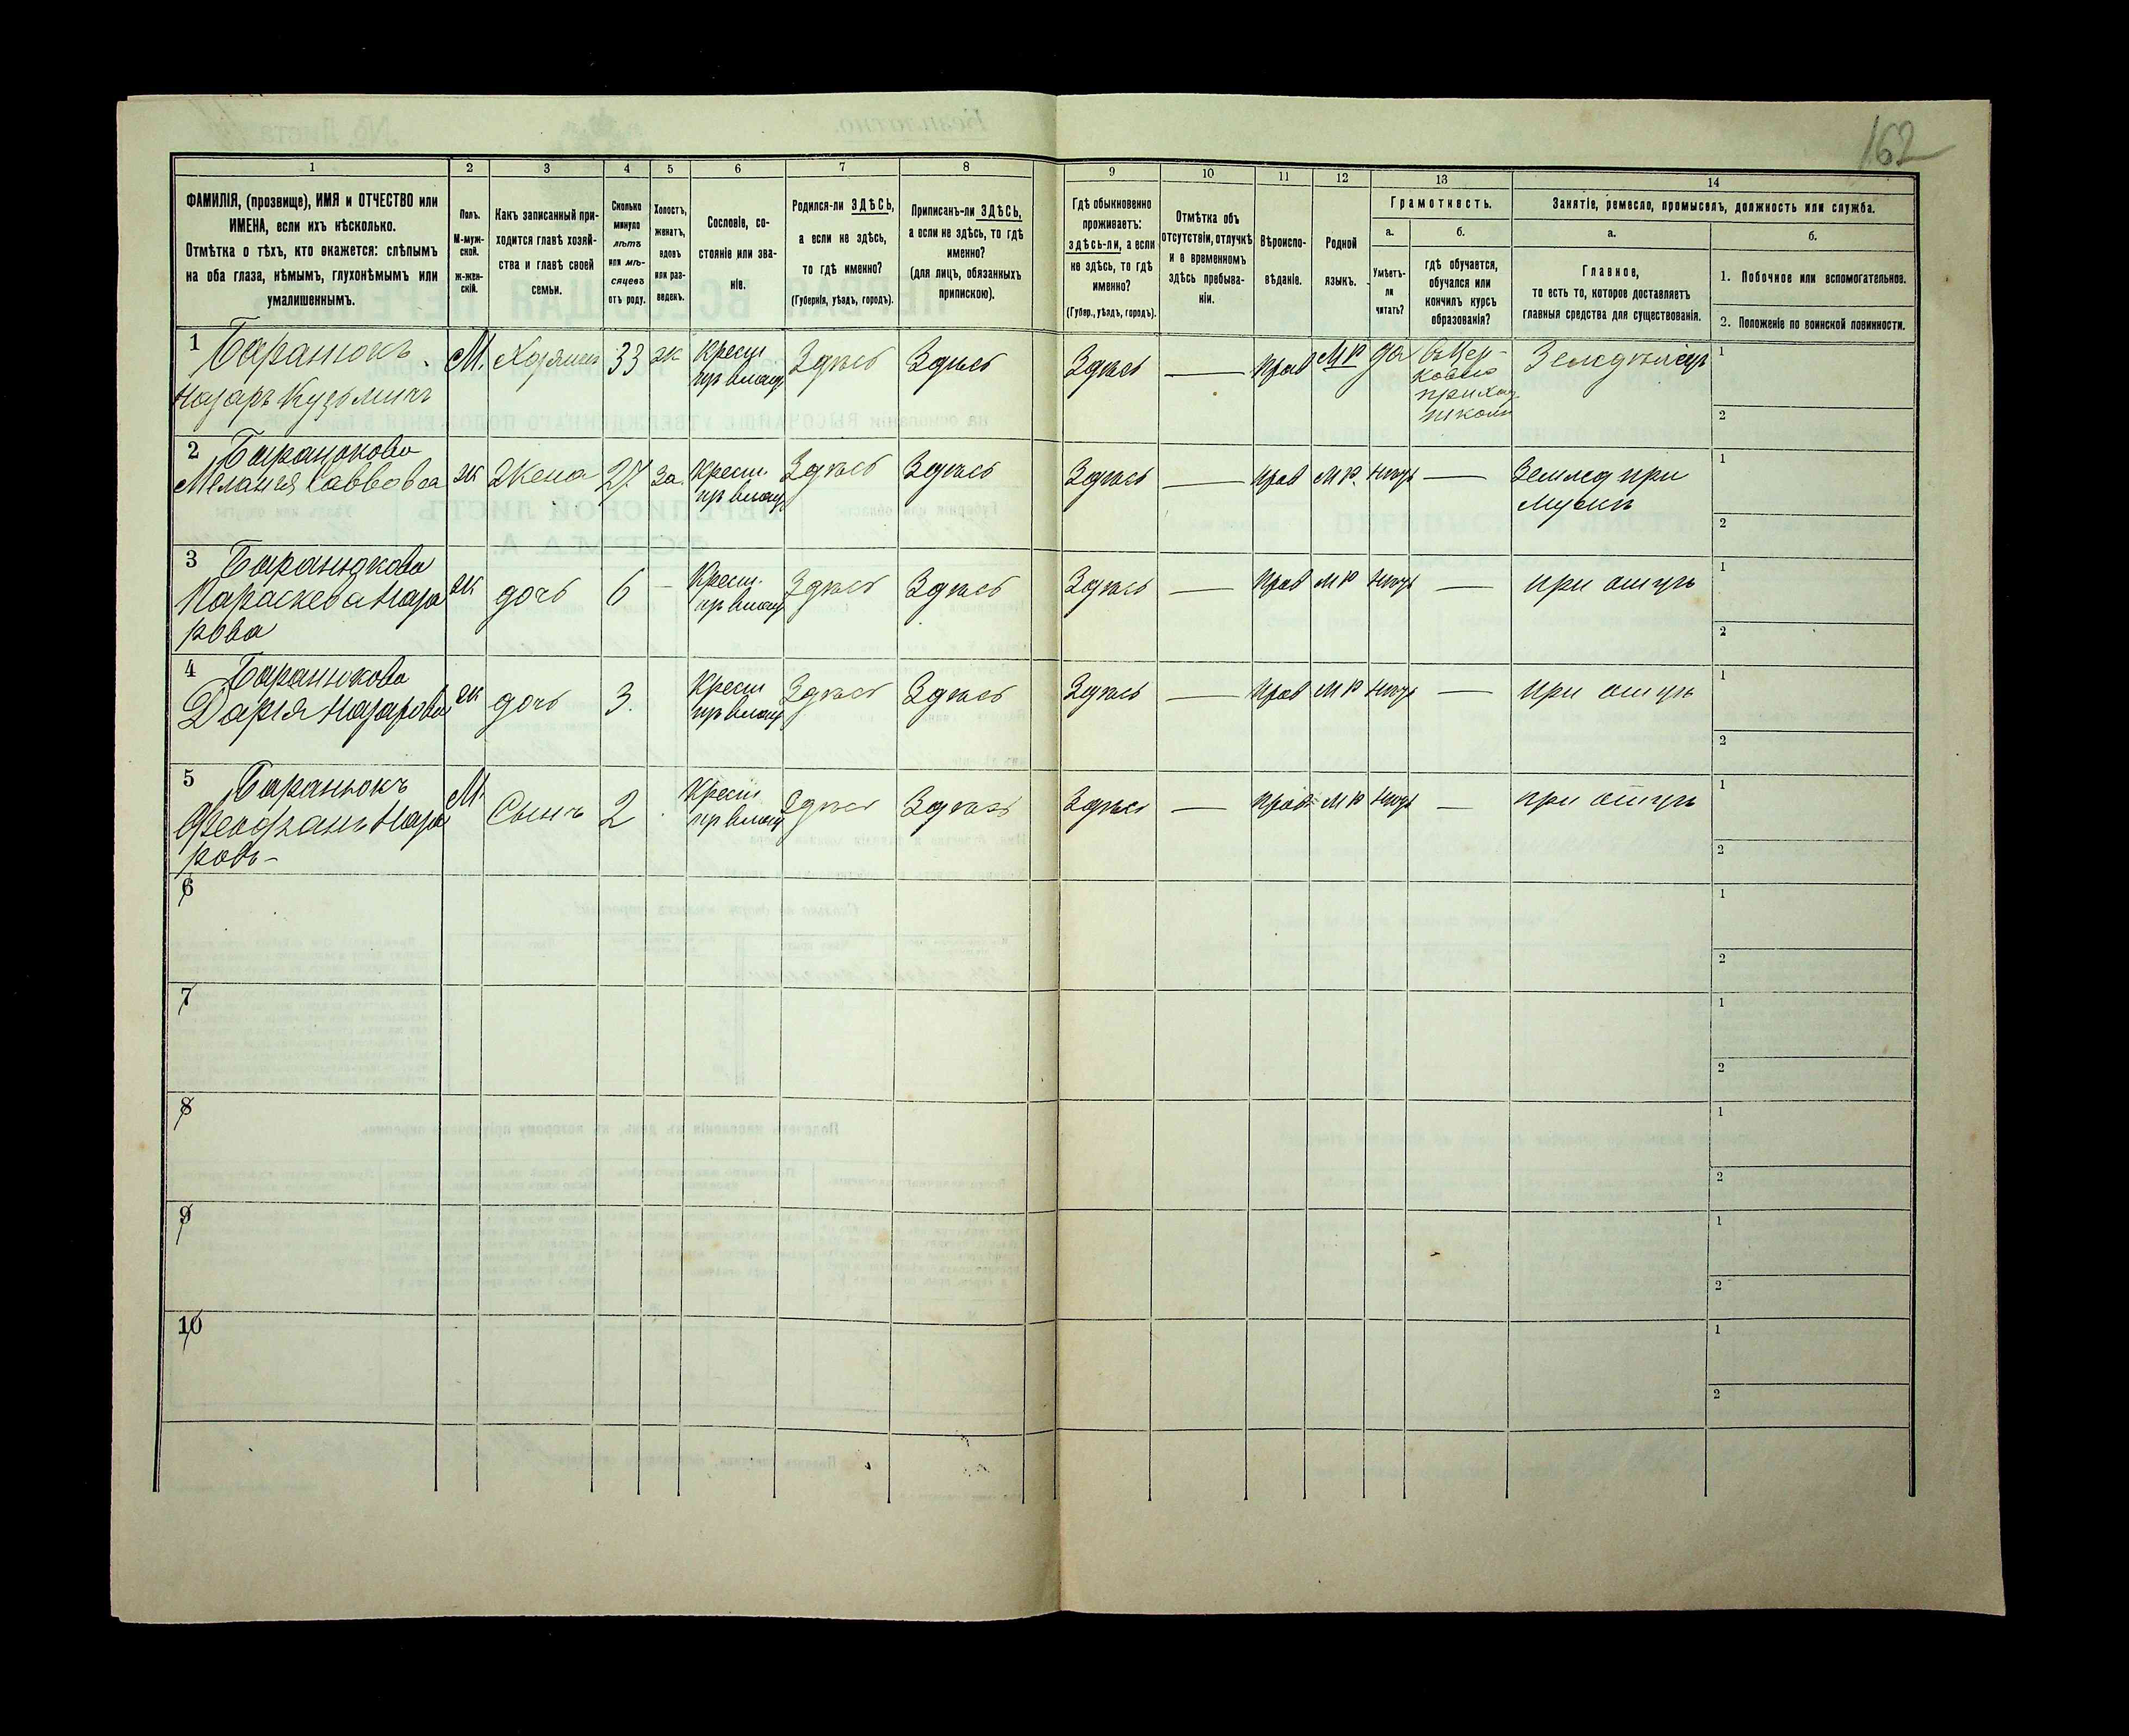 162
1
2
3
4
5
6
7
8
9
10
11
12
13
14
ФАМИЛІЯ, (прозвище), ИМЯ и ОТЧЕСТВО или
ИМЕНА, если ихъ нѣсколько.
Отмѣтка о тѣхъ, кто окажется: слѣпымъ
на оба глаза, нѣмымъ, глухонѣмымъ или
умалишеннымъ.
Полъ.
М-муж-
ской.
ж-жен-
скій.
Какъ записанный при-
ходится главѣ хозяй-
ства и главѣ своей
семьи.
Сколько
минуло
лѣтъ
или мѣ-
сяцевъ
отъ роду.
Холостъ,
женатъ,
вдовъ
или раз-
веденъ.
Сословіе, со-
стояніе или зва-
ніе.
Родился-ли ЗДѢСЬ,
а если не здѣсь,
то гдѣ именно?
(Губернія, уѣздъ, городъ).
Приписанъ-ли ЗДѢСЬ,
а если не здѣсь, то гдѣ
именно?
(для лицъ, обязанныхъ
припискою).
Гдѣ обыкновенно
проживаетъ:
здѣсь-ли, а если
не здѣсь, то гдѣ
именно?
(Губер., уѣздъ, городъ).
Отмѣтка объ
отсутствіи, отлучкѣ
и о временномъ
здѣсь пребыва-
ніи.
Вѣроиспо-
вѣданіе.
Родной
языкъ.
Грамотность.
а.
Умѣетъ-
ли
читать?
б.
гдѣ обучается,
обучался или
кончилъ курсъ
образованія?
Занятіе, ремесло, промыселъ, должность или служба.
а.
Главное,
то есть то, которое доставляетъ
главныя средства для существованія.
б.
1. Побочное или вспомогательное.
2. Положеніе по воинской повинности.
1 Баранюкъ
Назаръ Кузьминъ
М. Хозяинъ 33 ж Крест
пр влад Здѣсь Здѣсь Здѣсь — прав МР да Въ Цер-
ковно
приход
школѣ
Земледѣлецъ
1
2
2 Баранюкова
Мелания Саввова
ж Жена 27 За. Крест.
пр влад Здѣсь Здѣсь Здѣсь — прав МР. нѣтъ — Землед при
Мужѣ
1
2
3 Баранюкова
Параскева Наза
рова
ж дочь 6 — Крест.
пр влад Здѣсь Здѣсь Здѣсь — прав МР нѣтъ — при отцѣ
1
2
4 Баранюкова
Дарія Назарова
ж дочь 3. Крест
пр влад Здѣсь Здѣсь Здѣсь — прав МР нѣтъ — при отцѣ
1
2
5 Баранюкъ
Феофанъ Наза
ровъ-
М. Сынъ 2 Крест
пр влад Здѣсь Здѣсь Здѣсь — прав МР нѣтъ — при отцѣ
1
2
6
1
2
7
1
2
8
1
2
9
1
2
10
1
2